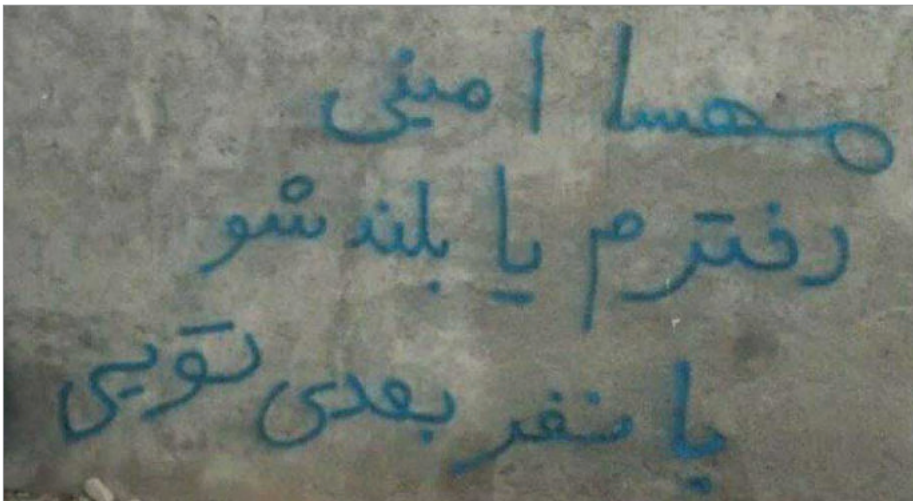 مهسا امینی
دفترم یا بلند شو
یا نفر بعدی تویی